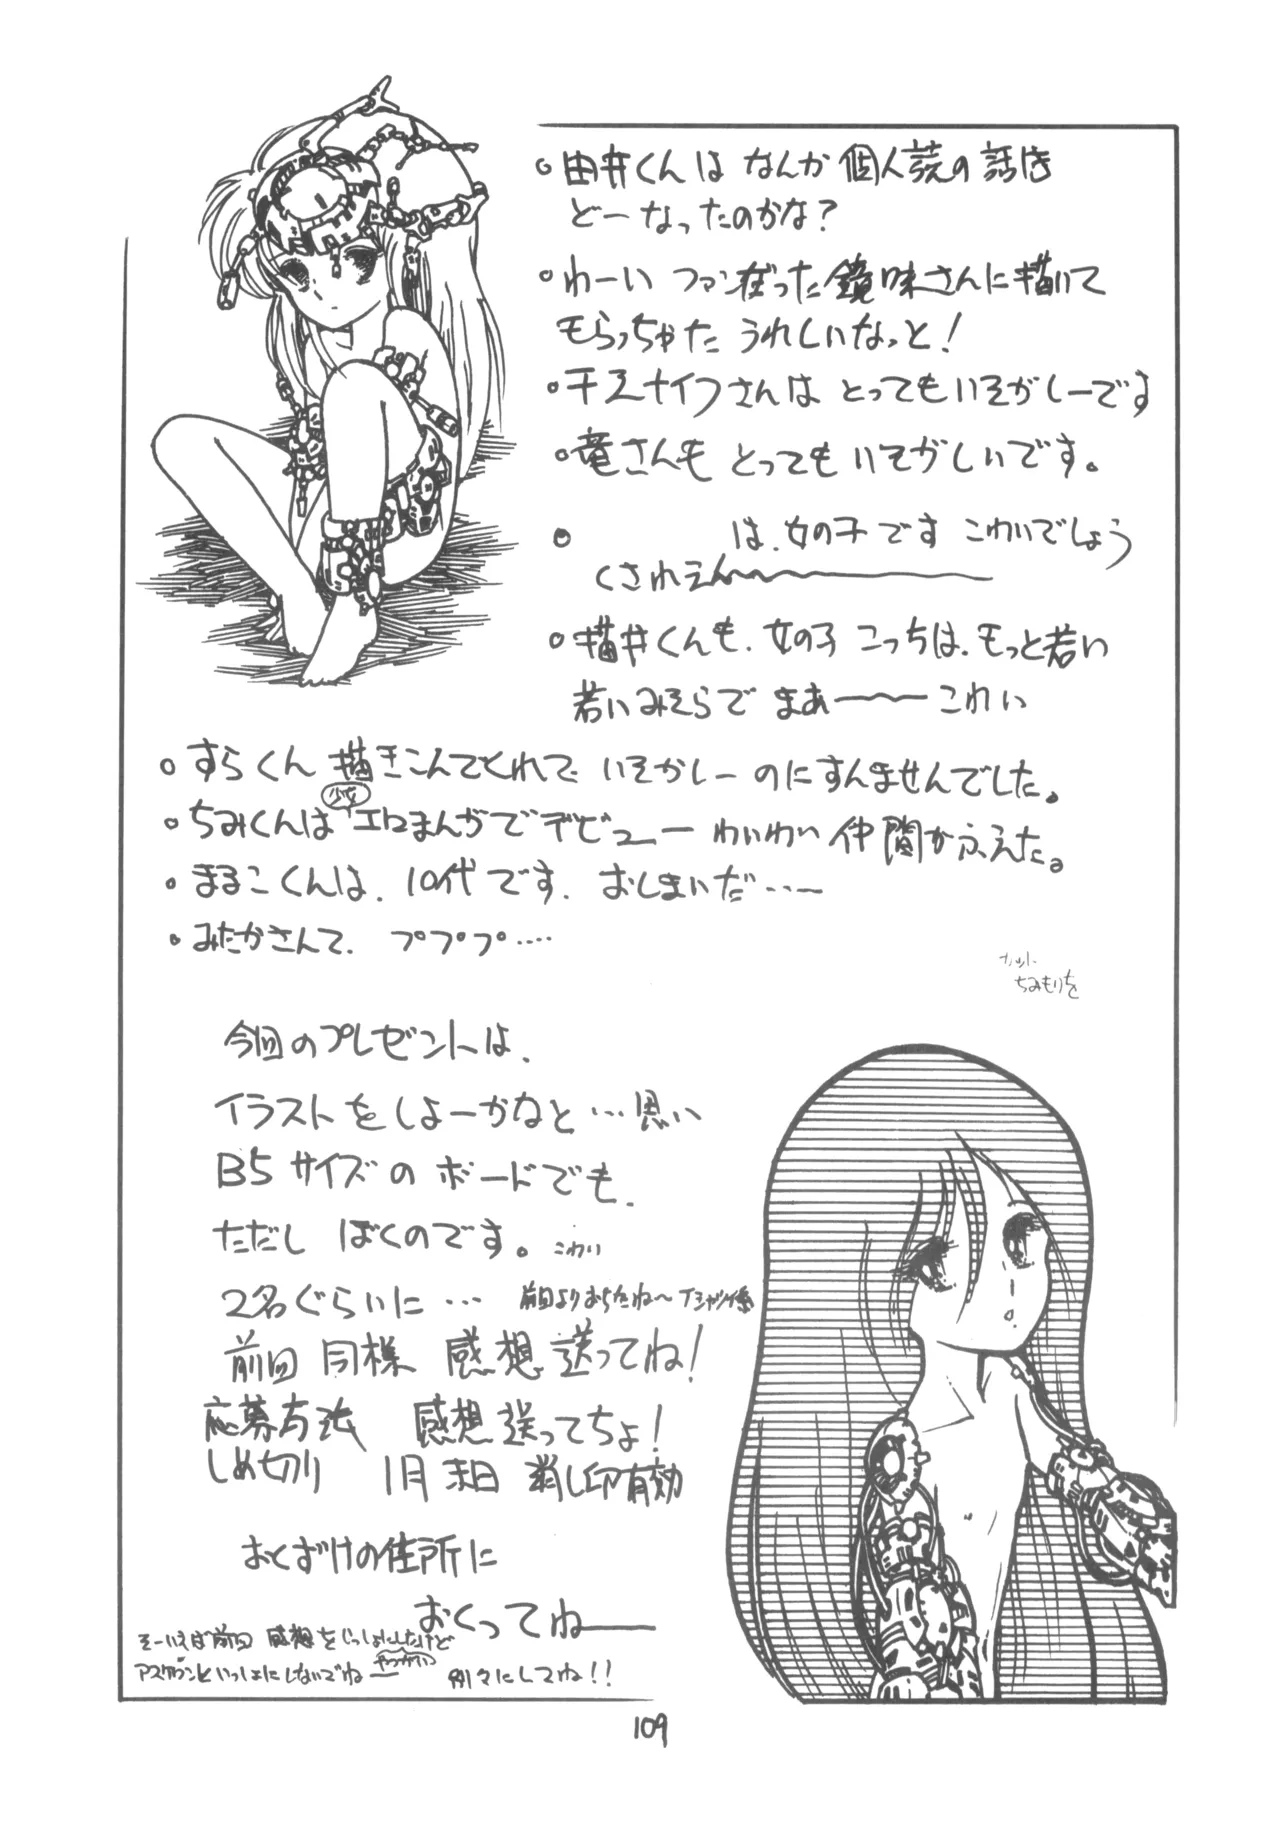 。由井くんは なんか 個人誌の話は
どーなったのかな？
。わーい ファンだった 鏡味さんに描いて
もらっちゃた うれしいなっと！
。ナイフさんは とってもいそがしーです
。竜さんも とっても いそがしいです。
。 は、女の子です こわいでしょう
くされえん〜〜〜
。猫井くんも、女の子 こっちは、もっと若い
若いみそらで まあー〜〜 こわい
。すらくん 描きこんでくれて いそがしーのにすんませんでした。
。ちみくんは 少女 エロまんがで デビュー わいわい 仲間がふえた。
。まるこくんは、10代です、おしまいだ…〜
。みたかさんて、 プププ‥‥
カット
ちみもりを
今回のプレゼントは、
イラストをしよーかなと…思い
B5サイズの ボードでも、
ただし ぼくのです。こわい
2名ぐらいに… 前回よりおちたね〜
前回同様 感想 送ってね！
応募方法 感想送ってちょ！
しめ切り 1月末日 消し印有効
おくずけの住所に
おくってねー
そーいえば前回 感想をいっしょにしたけど
アスケウンといっしょにしないでね 別々にしてね！！
109